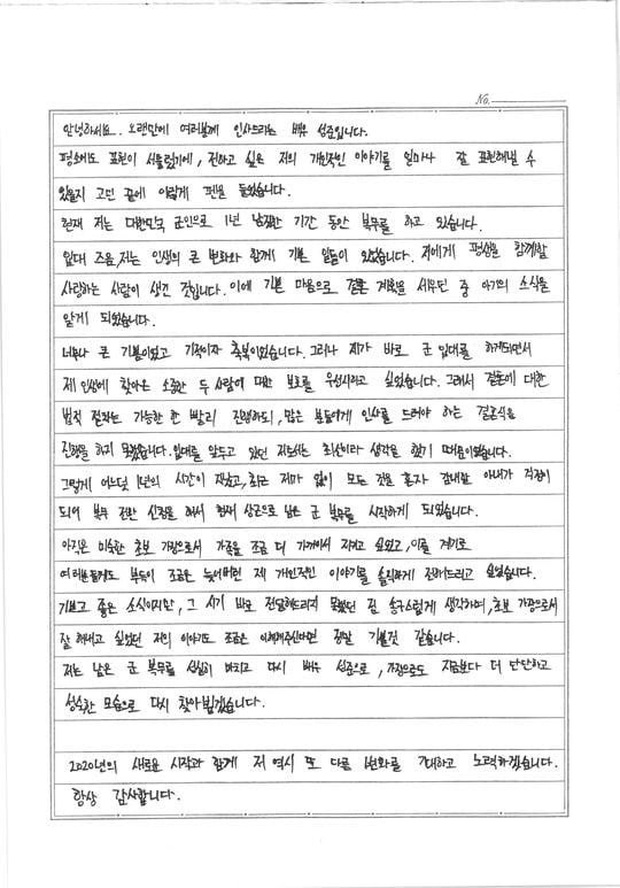 No.
안녕하세요. 오랜만에 여러분께 인사드리는 배우 성준입니다.
평소에도 표현이 서툴렀기에, 전하고 싶은 저의 개인적인 이야기를 얼마나 잘 표현해낼 수
있을지 고민 끝에 이렇게 펜을 들었습니다.
현재 저는 대한민국 군인으로 1년 남짓한 기간 동안 복무를 하고 있습니다.
입대 즈음, 저는 인생의 큰 변화와 함께 기쁜 일들이 있었습니다. 저에게 평생을 함께할
사랑하는 사람이 생긴 것입니다. 이에 기쁜 마음으로 결혼 계획을 세우던 중 아기의 소식을
알게 되었습니다.
너무나 큰 기쁨이었고 기적이자 축복이었습니다. 그러나 제가 바로 군 입대를 하게되면서
제 인생에 찾아온 소중한 두 사람에 대한 보호를 우선시하고 싶었습니다. 그래서 결혼에 대한
법적 절차는 가능한 한 빨리 진행하되, 많은 분들에게 인사를 드려야 하는 결혼식은
진행을 하지 못했습니다. 입대를 앞두고 있던 지라서는 최선이라 생각을 했기 때문이었습니다.
그렇게 어느덧 1년의 시간이 지났고, 최근 저마 없이 모든 것을 혼자 감내할 아내가 걱정이
되어 복무 전환 신청을 해서 현재 상근으로 남은 군 복무를 시작하게 되었습니다.
아직은 미숙한 초보 가장으로서 가족을 조금 더 가까이서 지키고 싶었고, 이를 계기로
여러분들께도 부득이 조금은 늦어버린 제 개인적인 이야기를 솔직하게 전해드리고 싶었습니다.
기쁘고 좋은 소식이지만, 그 시기 바로 전달해드리지 못했던 점 송구스럽게 생각하며, 초보 가장으로서
잘 해내고 싶었던 저의 이야기도 조금은 이해해주신다면 정말 기쁠것 같습니다.
저는 남은 군 복무를 성실히 마치고 다시 배우 성준으로, 가장으로도 지금보다 더 단단하고
성숙한 모습으로 다시 찾아뵙겠습니다.
2020년의 새로운 시작과 함께 저 역시 또 다른 변화를 기대하고 노력하겠습니다.
항상 감사합니다.